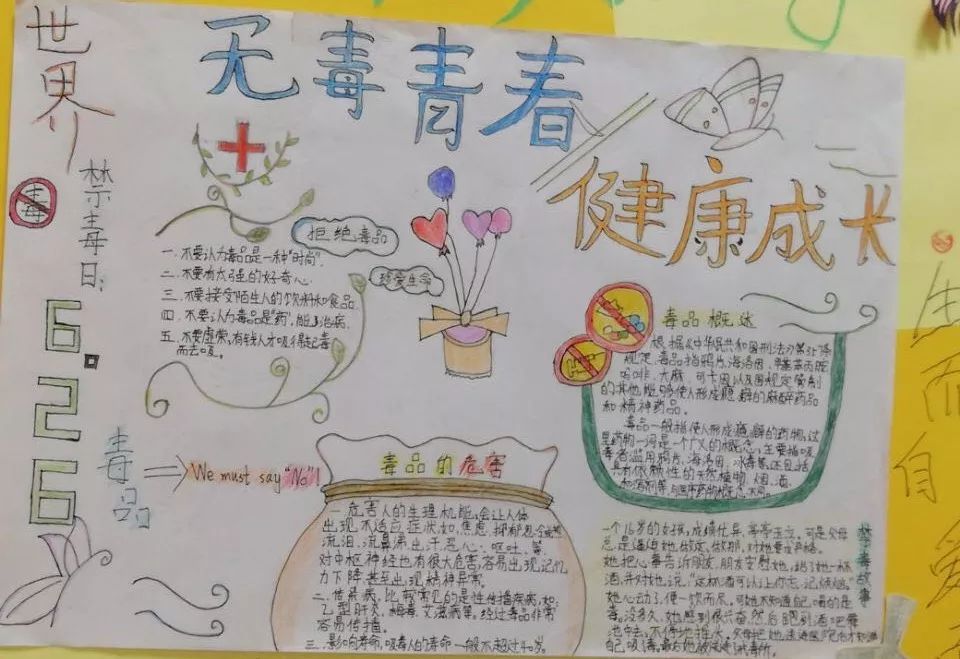 世界
禁毒日:
6.26
毒
无毒青春
健康成长
拒绝毒品
珍爱生命
一、不要认为毒品是一种"时尚".
二、不要有太强的好奇心.
三、不要接受陌生人的饮料和食品
四、不要认为毒品是"药",能治病.
五、不要虚荣,有钱人才吸得起毒
而去吸.
毒品
We must say "No"!
毒品概述
根据《中华民共和国刑法》第357条
规定,毒品指鸦片,海洛因,甲基苯丙胺
吗啡、大麻、可卡因以及国规定管制
的其他能够使人形成瘾癖的麻醉药品
和精神药品。
毒品一般指使人形成瘾癖的药物,这
里药物一词是一个广义的概念,主要指吸
毒者滥用鸦片,海洛因,冰毒等,还包括
具有依赖性的天然植物、烟、酒、
和溶剂等,与医用药物概念不同
毒品的危害
一.危害人的生理机能,会让人体
出现不适应症状如,焦虑 抑郁
流泪、流鼻涕出汗恶心、呕吐、等、
对中枢神经也有很大危害,容易出现记忆
力下降甚至出现精神异常.
二.传染病,比较常见的是性传播疾病,如
乙型肝炎,梅毒 艾滋病等,经过毒品非常
容易传播.
三.影响寿命,吸毒人的寿命一般不超过40岁.
禁毒故事
一个16岁的女孩,成绩优异,亭亭玉立,可是父母
总是逼迫她做这,做那,对她要求严格.
她把心事告诉朋友,朋友安慰她,给了她一杯
酒,并对她说:"这杯酒可以让你忘记烦恼."
她心动了,便一饮而尽,可她不知道自己喝的是
毒,没多久,她感到很兴奋,然后跑到酒吧舞
池中去,不停地
自己吸毒,最后她被送进戒毒所.
生而自